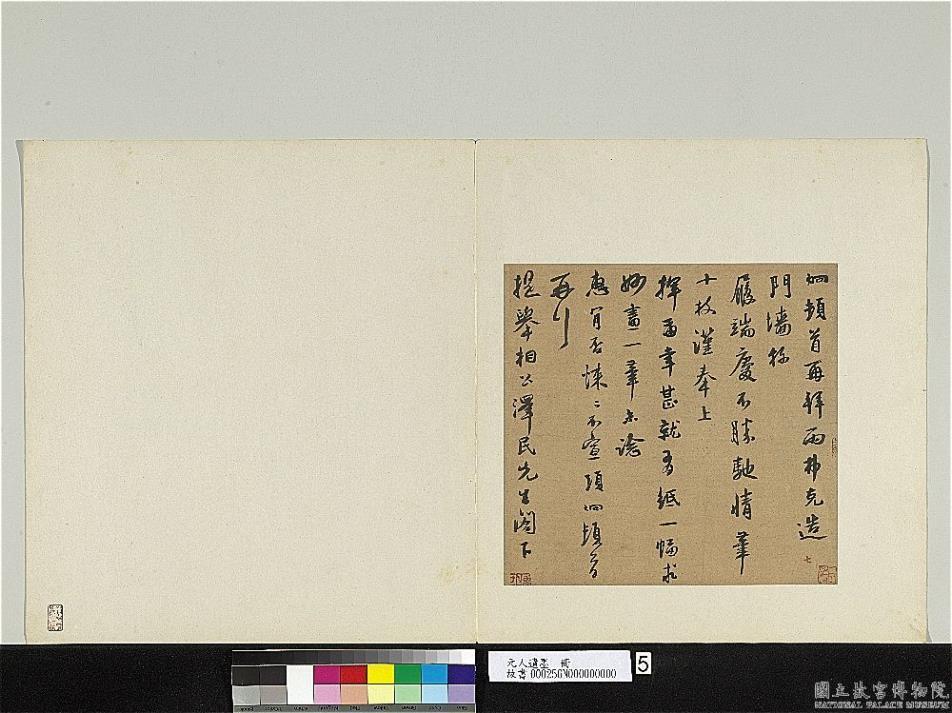 炯頓首再拜雨弗克造
門墻称
履端慶不勝馳情筆
十枚謹奉上
揮幸甚就有紙一幅求
妙畫一筆未諗
惠肎否悚〻不宣項炯頓首
再拜
提舉相公澤民先生閣下
七
元人遺墨 冊
故書 000256N000000000
5
國立故宮博物院
NATIONAL PALACE MUSEUM